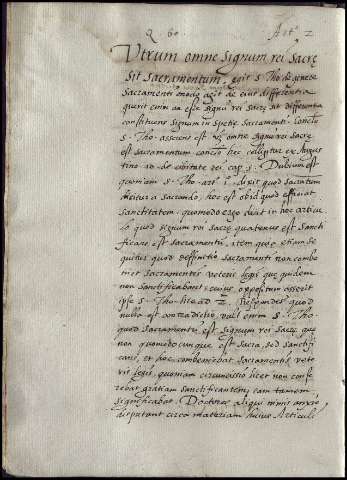 Q. 60. Artˢ 2
Utrum omne signum rei sacrę
sit sacramentum. egit s. Tho. de genere
sacramenti modo agit de eius differentia
querit enim an esse signũ rei sacrę sit differentia
constituens signum in specie sacramenti. Conclo
s. Tho. asserens est omne signũ rei sacrę
est sacramentum conclo hec colligitur ex Augus
tino 10 de civitate dei cap. 5. Dubium est
quoniam s. Tho. artˢ 1. dixit quod sacramentum
dicitur a sacrando, hoc est ab id quod efficiat
sanctitatem, quomodo ergo dicit in hoc articu
lo quod signum rei sacrę quatenus est sancti
ficans est sacramentũ, item quia etiam se
quitur quod deffinitio sacramenti non conve
niet sacramentis veteris legis quę quidem
non sanctificabant: cuius oppositum asserit
ipse s. Tho. hic ad 2. Respondet quod
nulla est contradictio, vult enim s. Tho.
quod sacramentũ est signum rei sacrę, quę
non quomodocunque est sacra, sed sanctifi
cans, et hoc conveniebat sacramentis vete
ris legis, quoniam circuncissio licet non confe
rebat gratiam sanctificantem, eam tamen
significabat. Doctores aliqui nimis anxie
disputant circa materiam huius Articuli